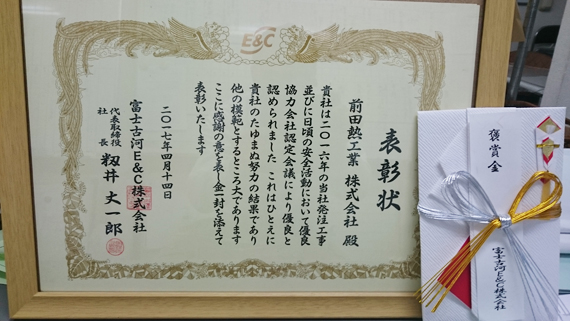 E&C
表彰状
前田熱工業 株式会社 殿
貴社は二〇一六年の当社発注工事
並びに日頃の安全活動において優良
協力会社認定会議により優良と
認められました これはひとえに
貴社のたゆまぬ努力の結果であり
他の模範とするところ大であります
ここに感謝の意を表し金一封を添えて
表彰いたします
二〇一七年四月十四日
富士古河E&C株式会社
代表取締役
社長
籾井 丈一郎
褒賞金
富士古河E&C株式会社